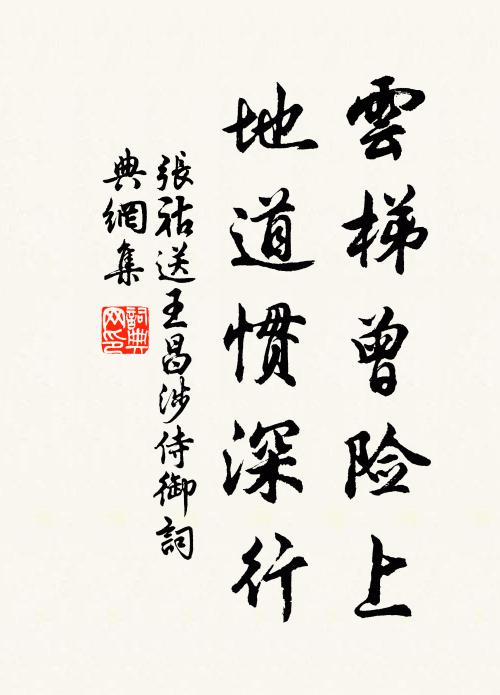 雲梯曾险上
地道惯深行
張祜送王昌涉侍御詞
典網集
詞典
网印